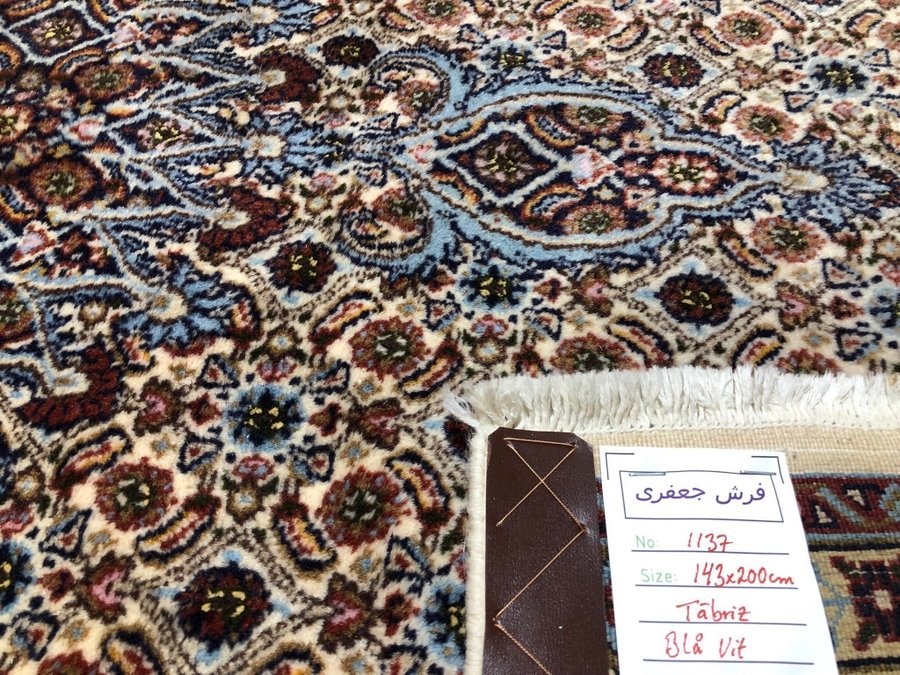 فرش جعفری
No: 1137
Size: 143x200cm
Täbriz
Blå Vit